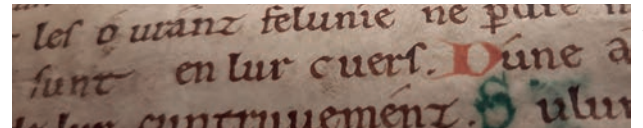 les ouranz felunie ne
sunt en lur cuers. Dune a
lur cuntruuemenz. Sulur